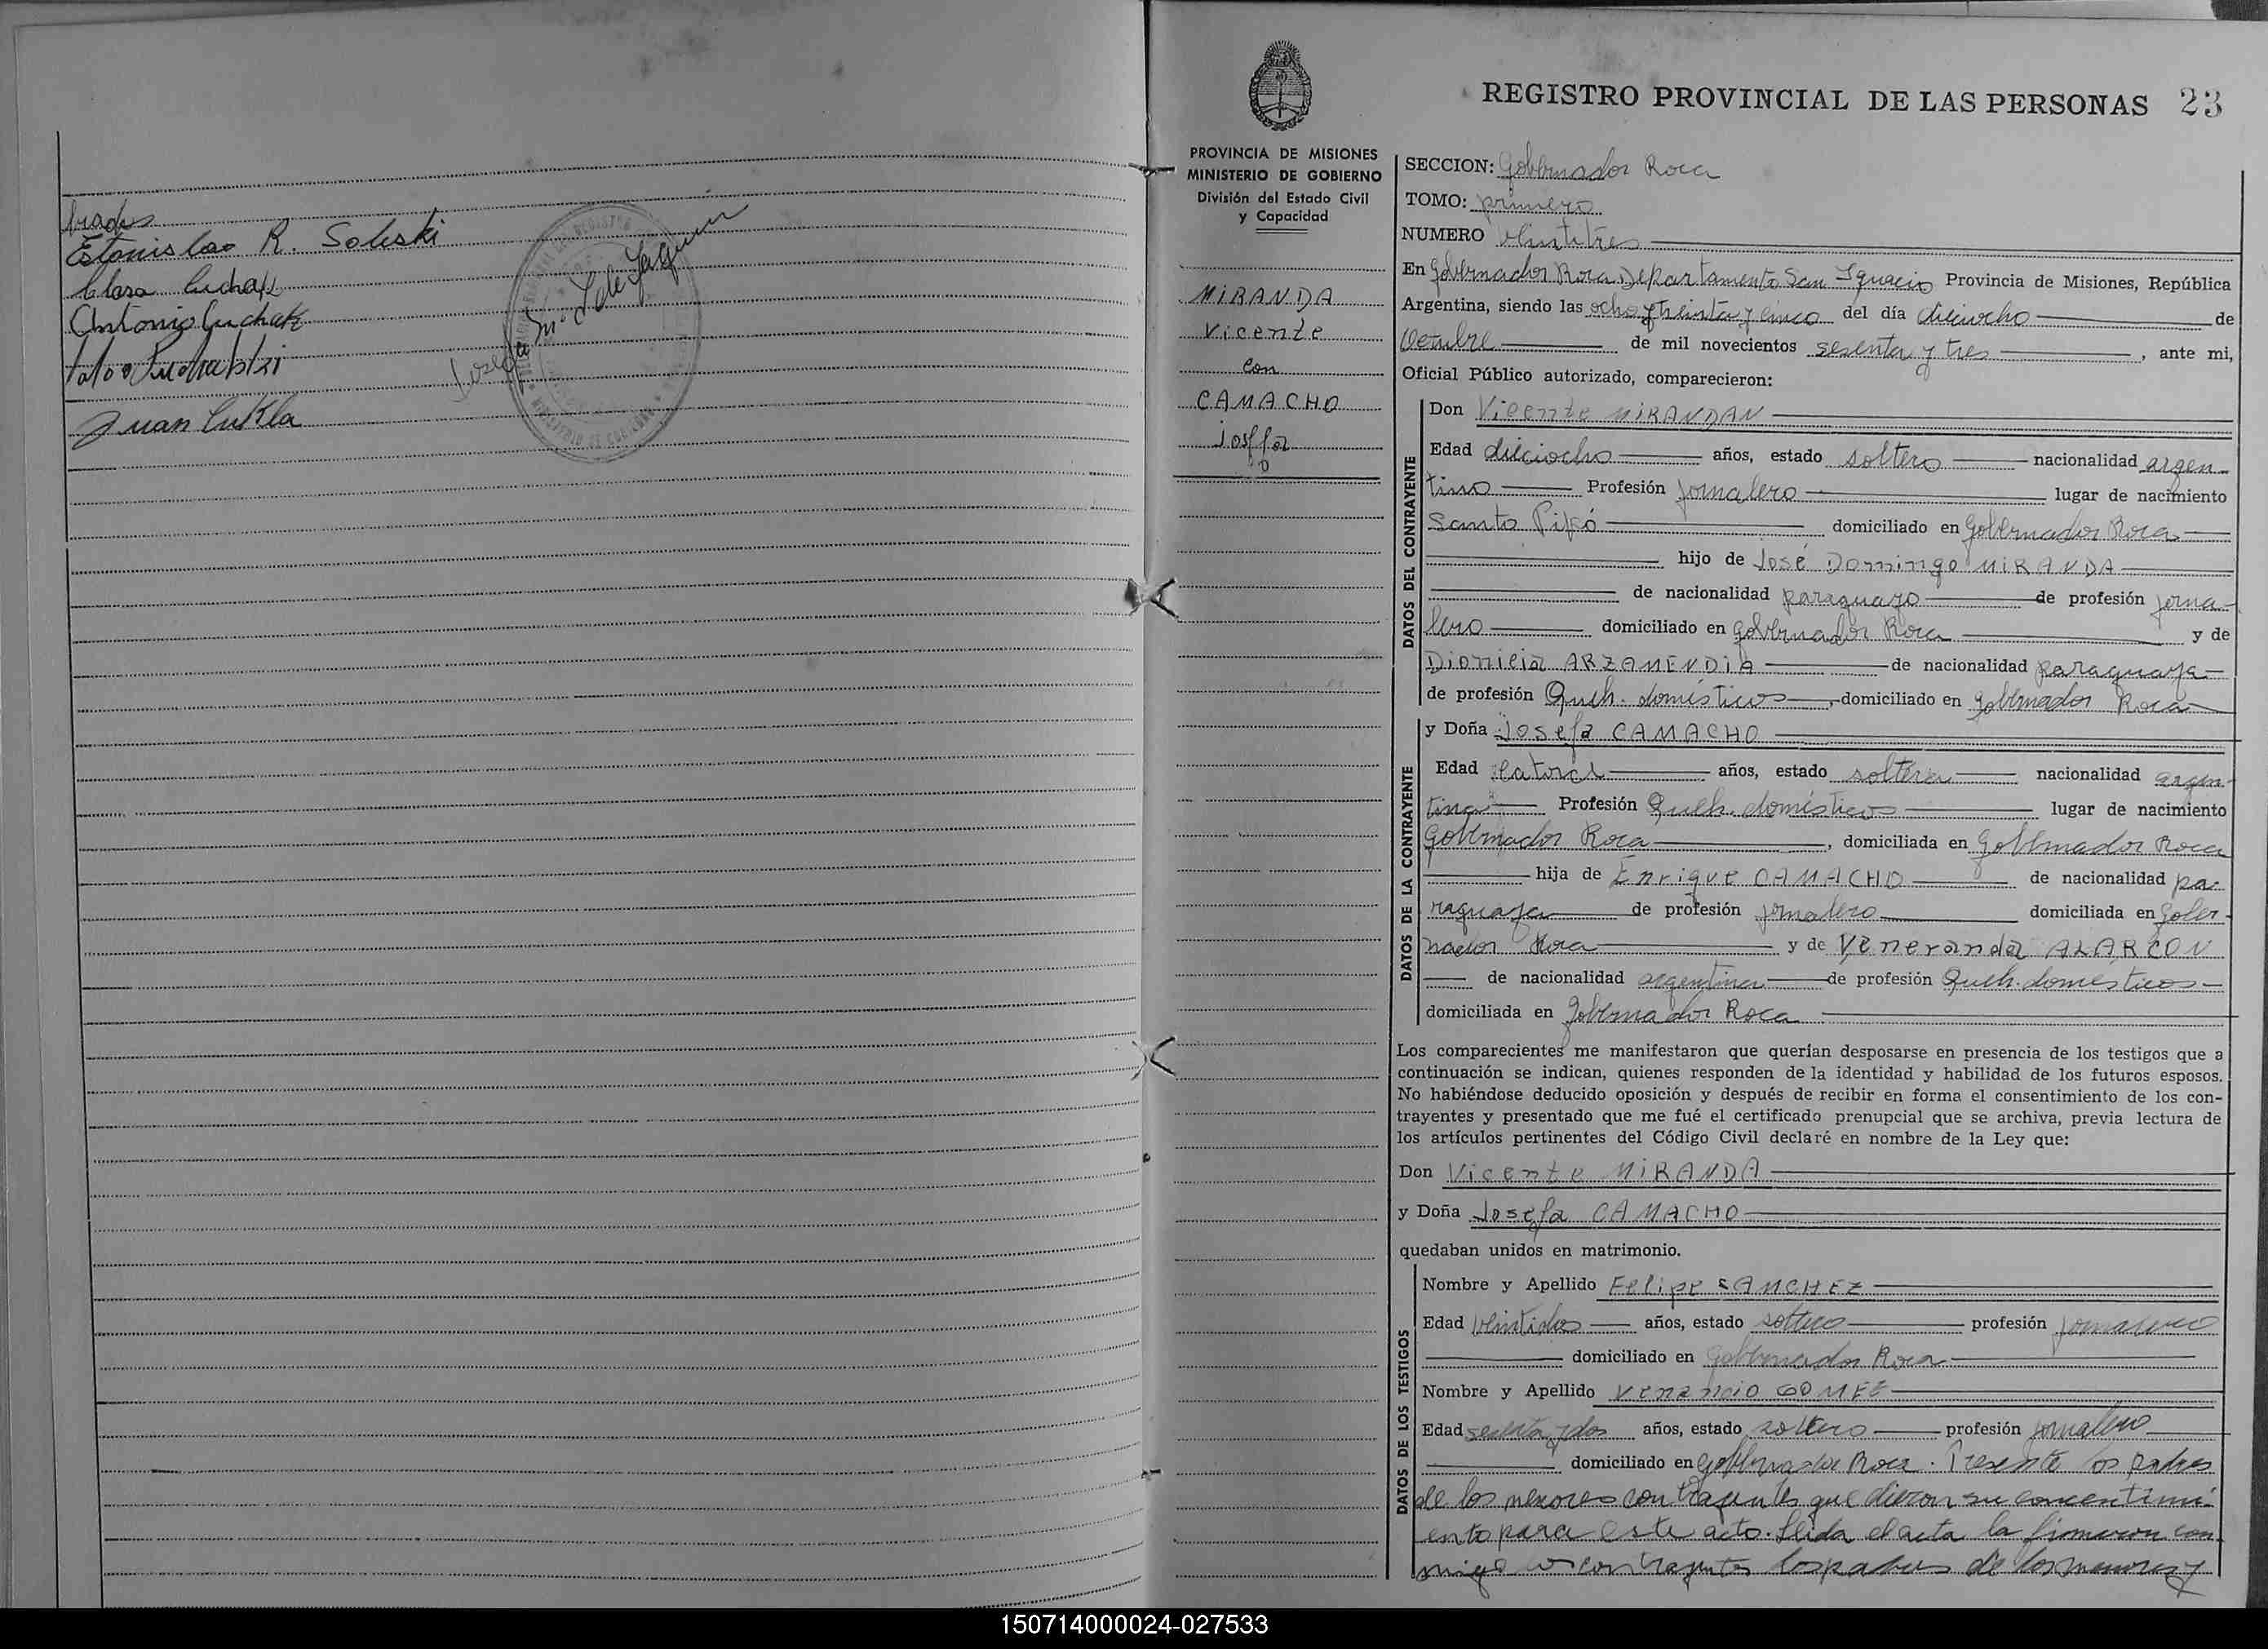 Estanislao R. Soleski
Clara Cuchak
Antonio Cuchak
Juan Cukla
REGISTRO PROVINCIAL DE LAS PERSONAS 23
PROVINCIA DE MISIONES
MINISTERIO DE GOBIERNO
División del Estado Civil
y Capacidad
MIRANDA
Vicente
con
CAMACHO
Josefa
SECCION: Gobernador Roca
TOMO: primero
NUMERO veintitres
En Gobernador Roca Departamento San Ignacio Provincia de Misiones, República
Argentina, siendo las ocho y treinta y cinco del día dieciocho de
Octubre de mil novecientos sesenta y tres, ante mi,
Oficial Público autorizado, comparecieron:
DATOS DEL CONTRAYENTE
Don Vicente MIRANDAN
Edad dieciocho años, estado soltero nacionalidad argen-
tino Profesión Jornalero lugar de nacimiento
Santo Pipó domiciliado en Gobernador Roca
hijo de José Domingo MIRANDA
de nacionalidad paraguayo de profesión jorna-
lero domiciliado en Gobernador Roca y de
Dionicia ARZAMENDIA de nacionalidad paraguaya
de profesión Queh. domésticos, domiciliado en Gobernador Roca
DATOS DE LA CONTRAYENTE
y Doña Josefa CAMACHO
Edad catorce años, estado soltera nacionalidad argen-
tina Profesión Queh. domésticos lugar de nacimiento
Gobernador Roca, domiciliada en Gobernador Roca
hija de Enrique CAMACHO de nacionalidad pa-
raguaya de profesión jornalero domiciliada en Gober-
nador Roca y de Veneranda ALARCON
de nacionalidad argentina de profesión Queh. domésticos
domiciliada en Gobernador Roca
Los comparecientes me manifestaron que querían desposarse en presencia de los testigos que a
continuación se indican, quienes responden de la identidad y habilidad de los futuros esposos.
No habiéndose deducido oposición y después de recibir en forma el consentimiento de los con-
trayentes y presentado que me fué el certificado prenupcial que se archiva, previa lectura de
los artículos pertinentes del Código Civil declaré en nombre de la Ley que:
Don Vicente MIRANDA
y Doña Josefa CAMACHO
quedaban unidos en matrimonio.
DATOS DE LOS TESTIGOS
Nombre y Apellido Felipe SANCHEZ
Edad veintidos años, estado soltero profesión jornalero
domiciliado en Gobernador Roca
Nombre y Apellido Venancio GOMEZ
Edad sesenta y dos años, estado soltero profesión jornalero
domiciliado en Gobernador Roca. Presente los padres
de los menores contrayentes que dieron su concentimi-
ento para este acto. Leida el acta la firmaron con-
migo los contrayentes los padres de los menores y
150714000024-027533